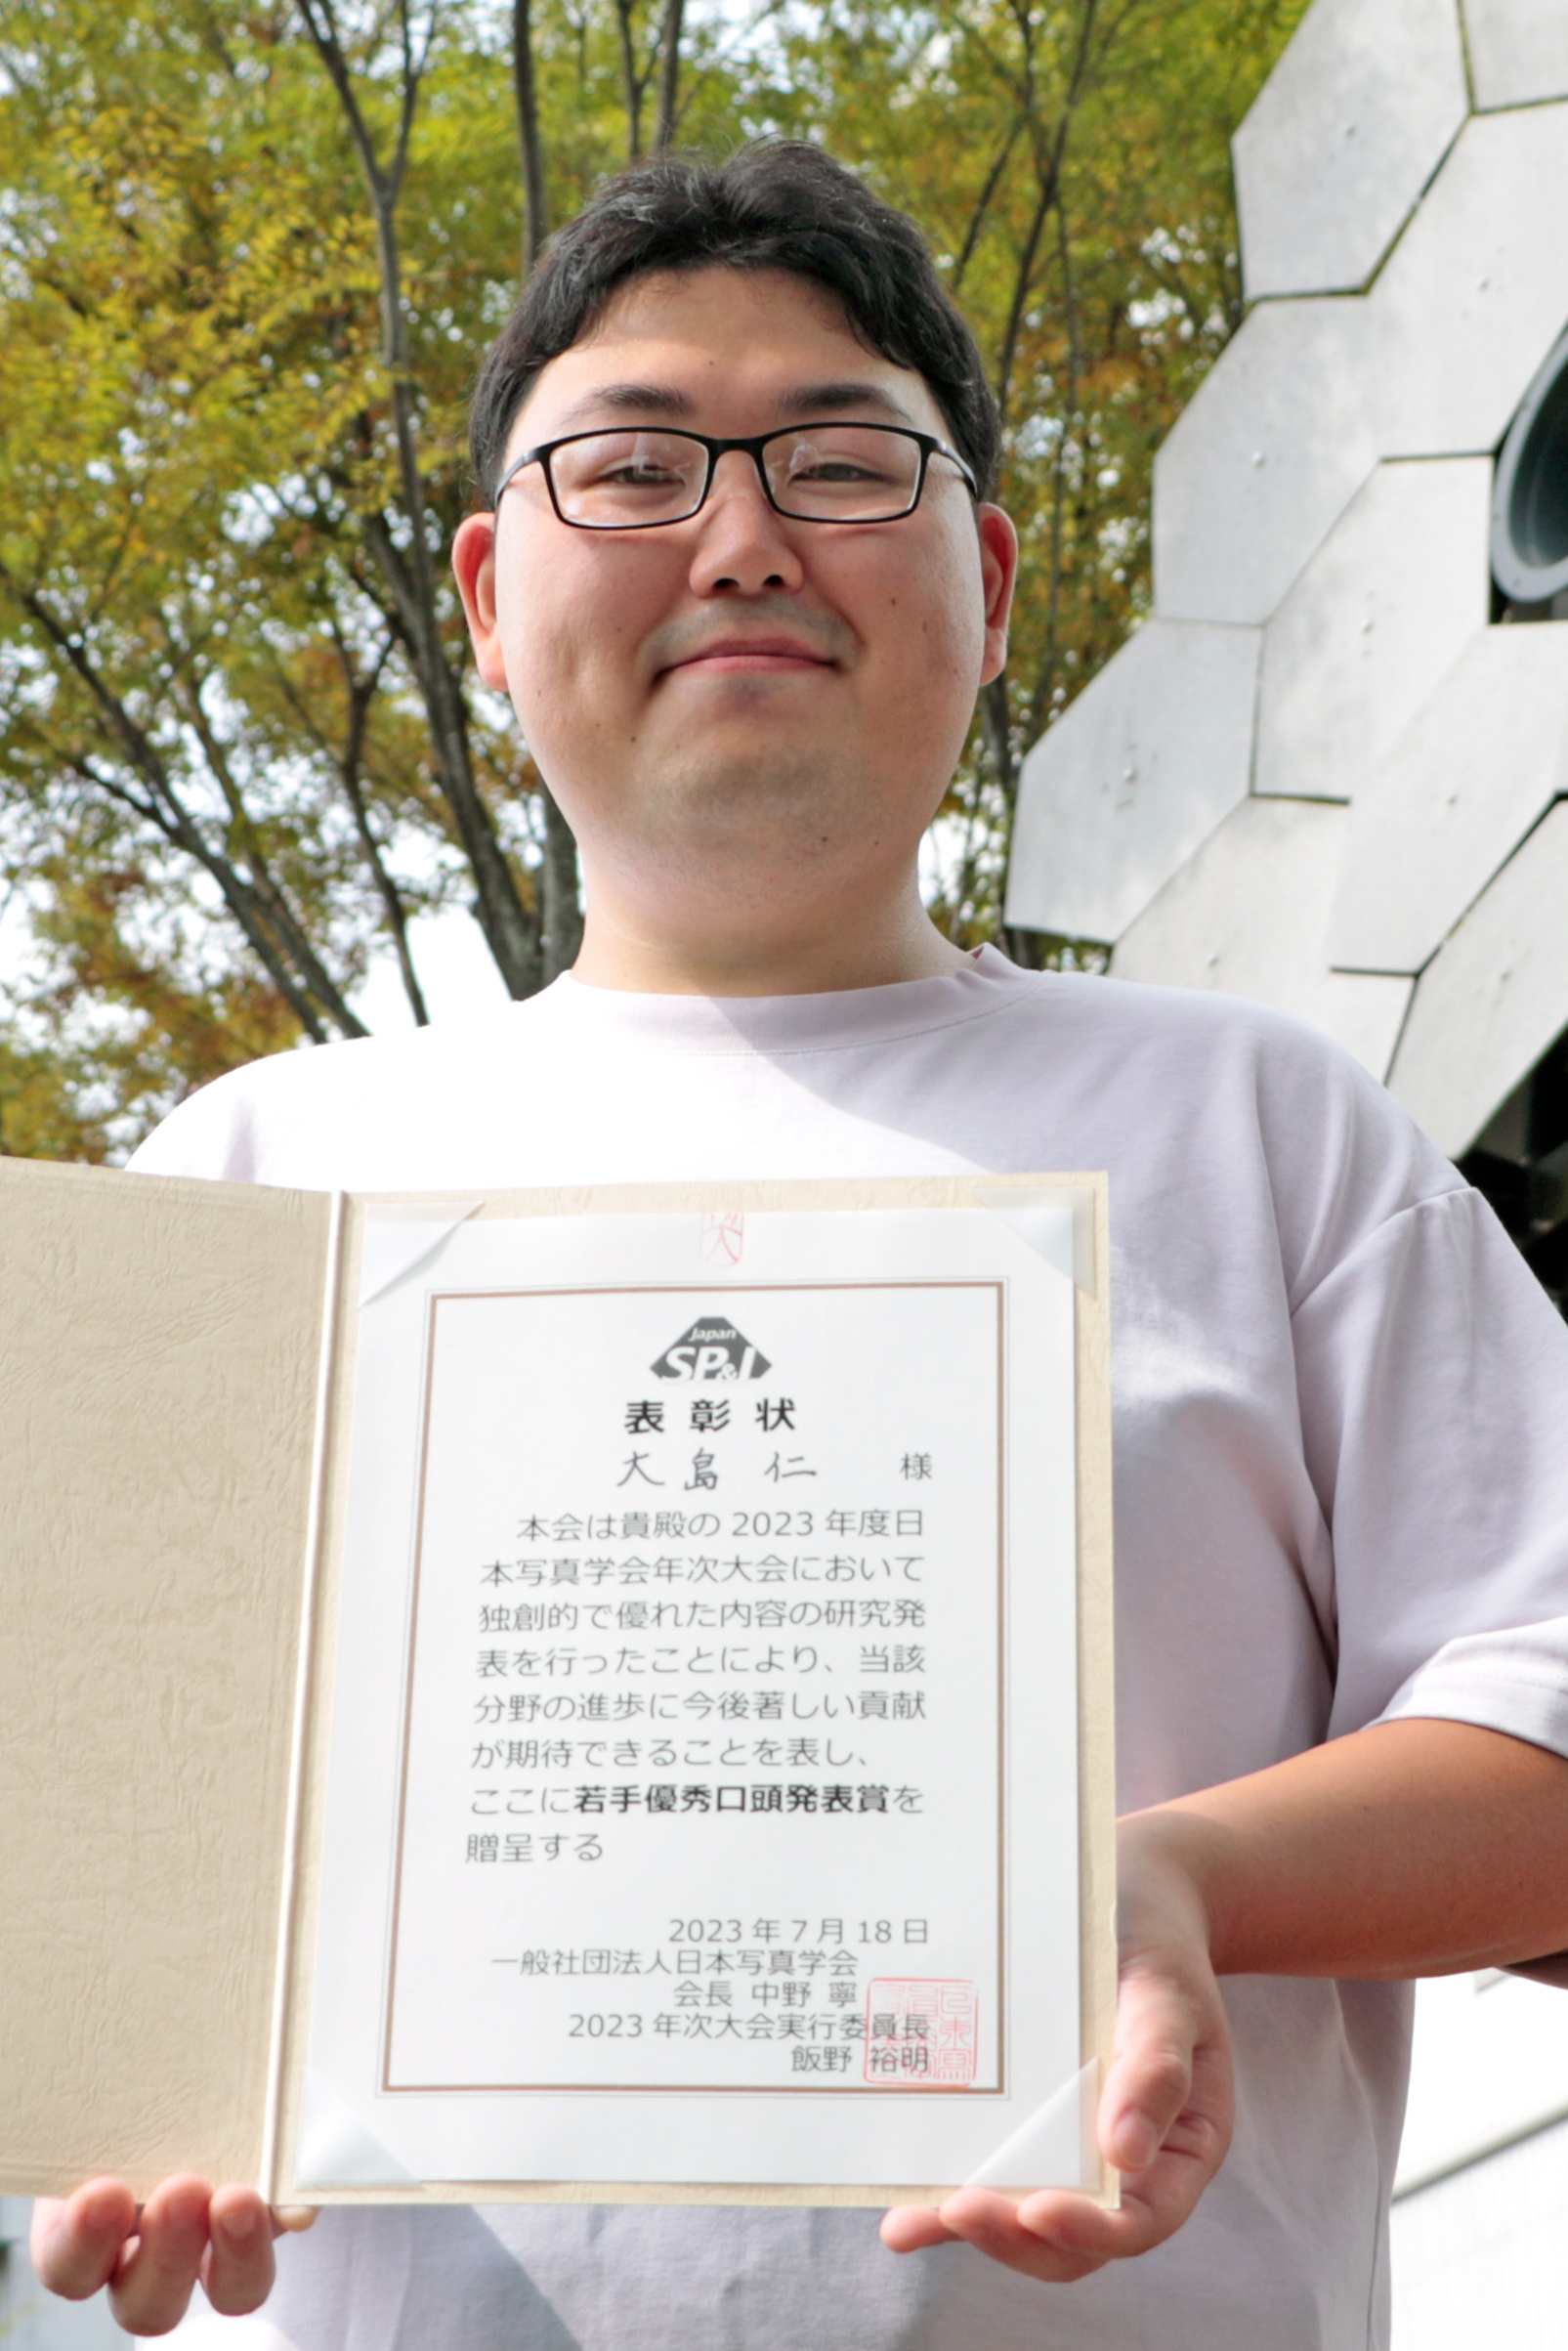 Japan
SP&I
表彰状
大島 仁 様
本会は貴殿の2023年度日
本写真学会年次大会において
独創的で優れた内容の研究発
表を行ったことにより、当該
分野の進歩に今後著しい貢献
が期待できることを表し、
ここに若手優秀口頭発表賞を
贈呈する
2023年7月18日
一般社団法人日本写真学会
会長 中野 寧
2023年次大会実行委員長
飯野 裕明